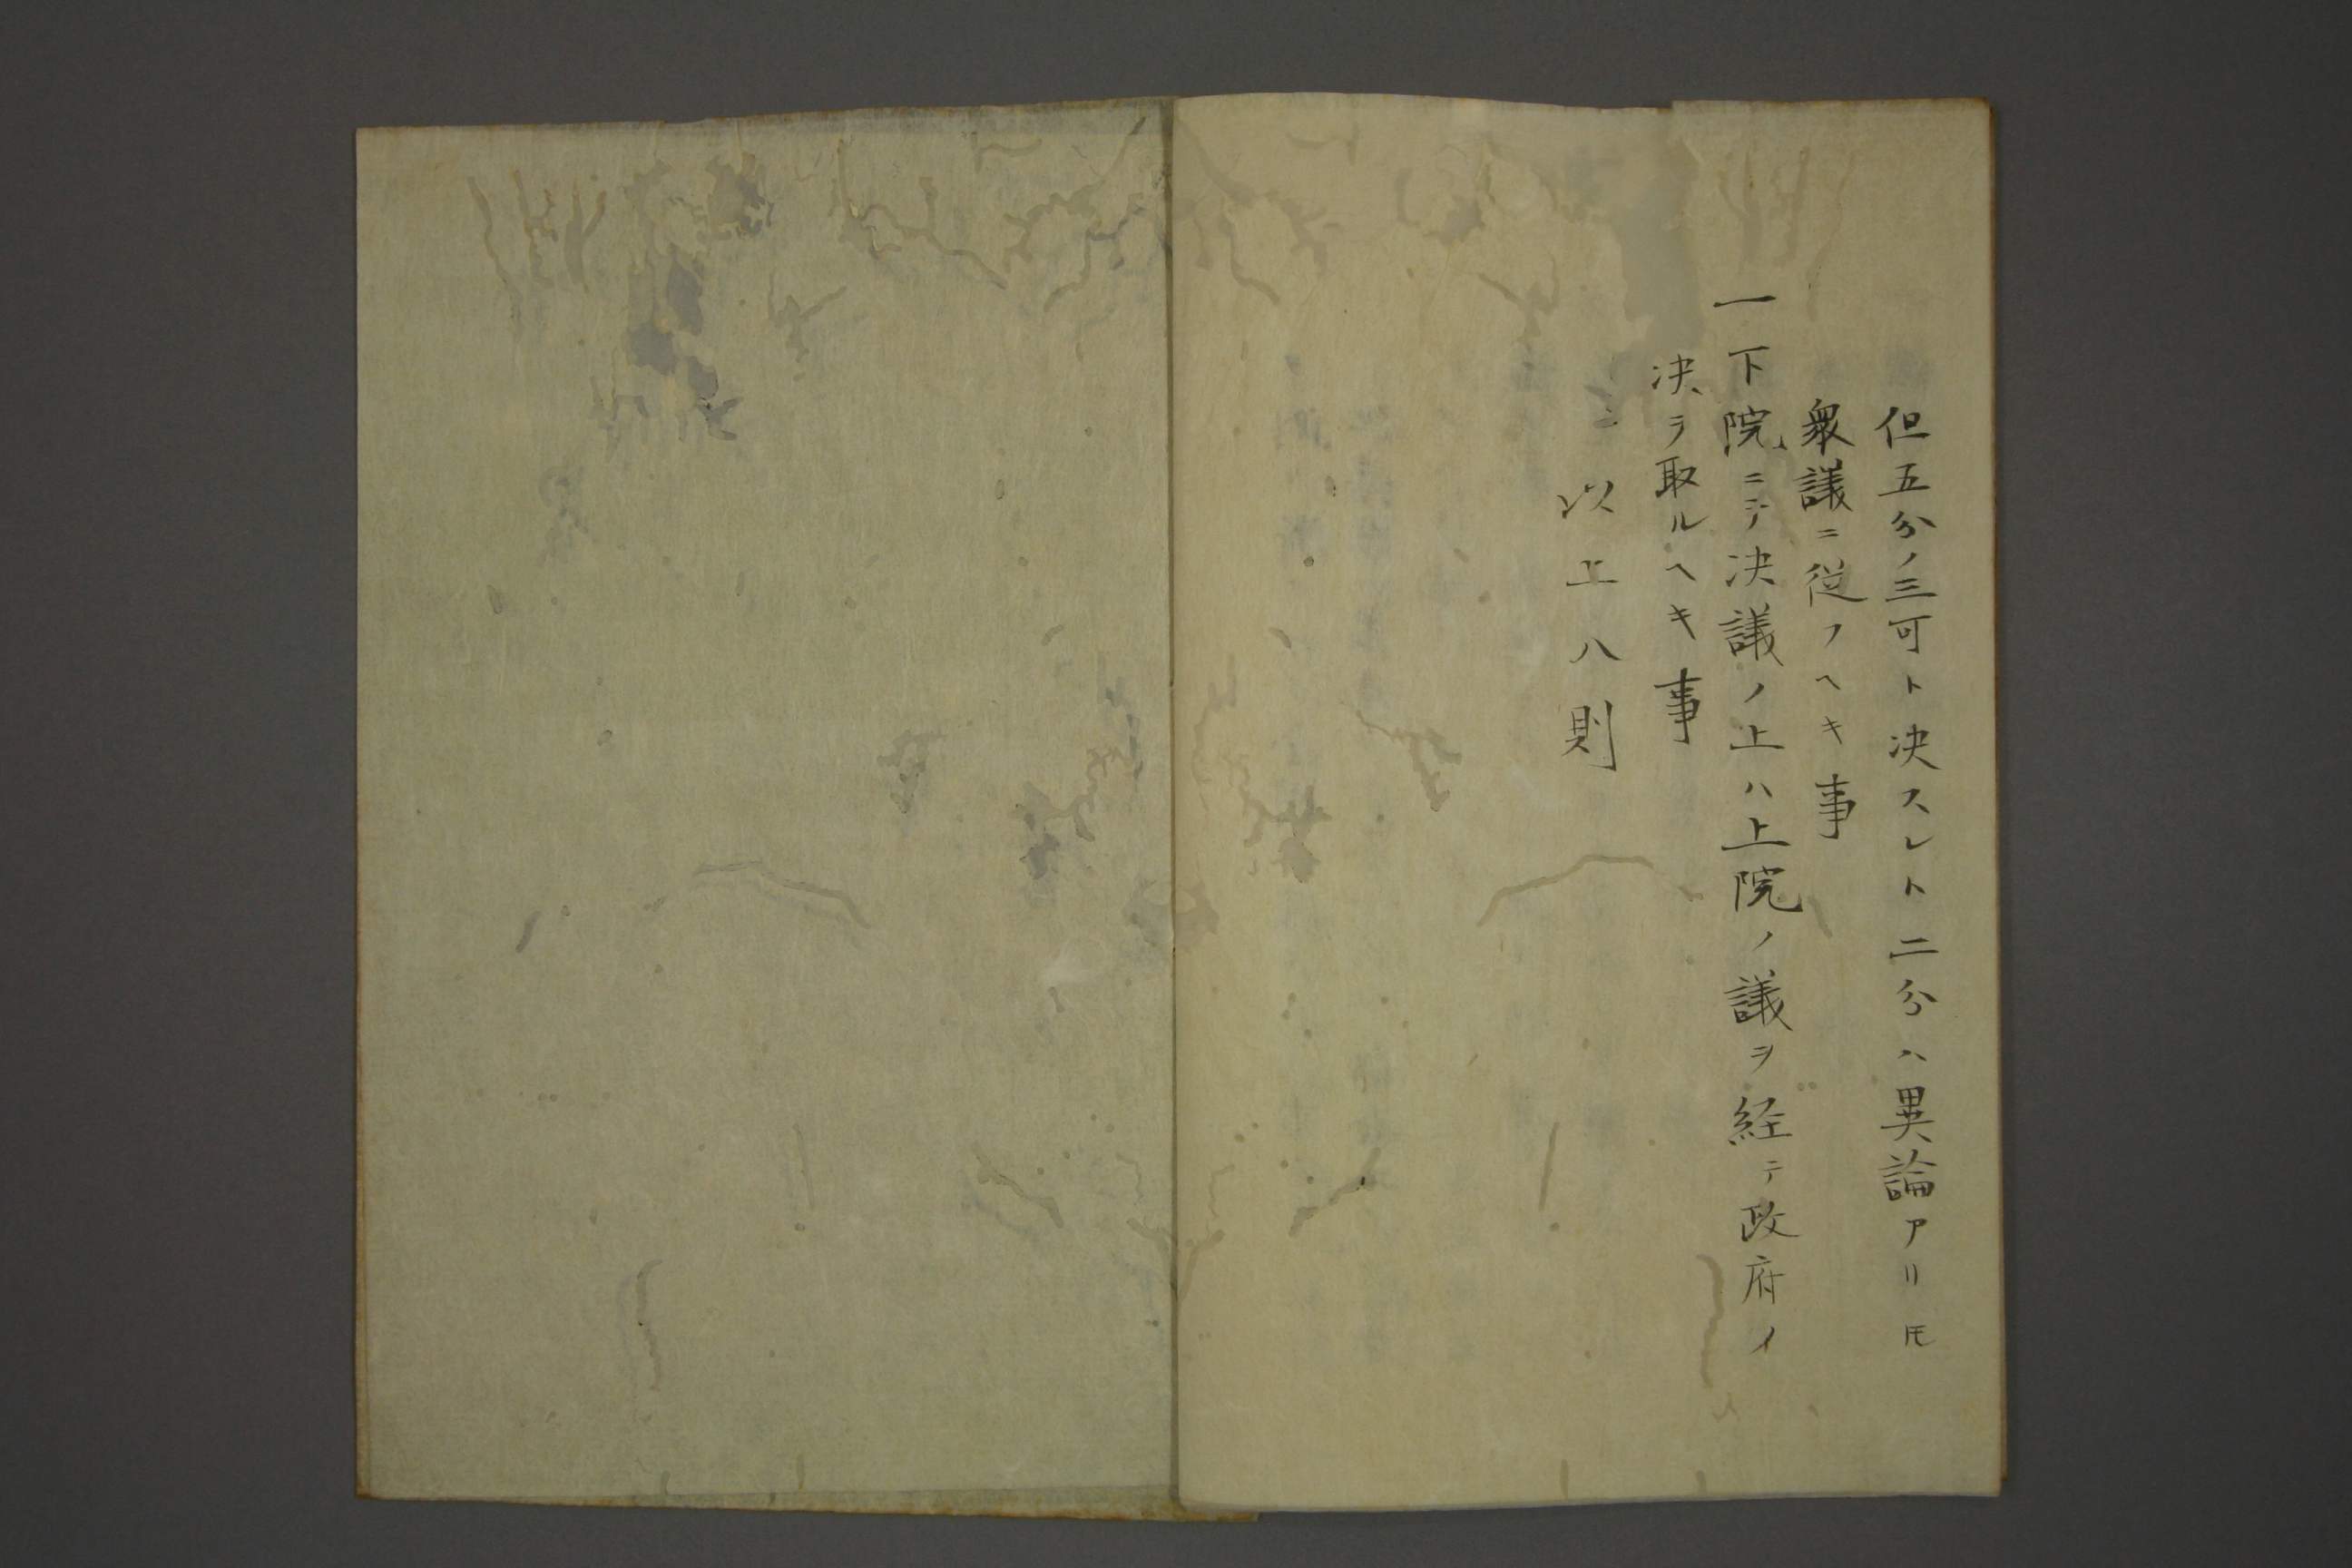 但五分ノ三可ト决スレト二分ハ異論アリ𪜈
衆議ニ従フヘキ事
一下院ニテ决議ノ上ハ上院ノ議ヲ経テ政府イ
决ヲ取ルヘキ事
以上八則